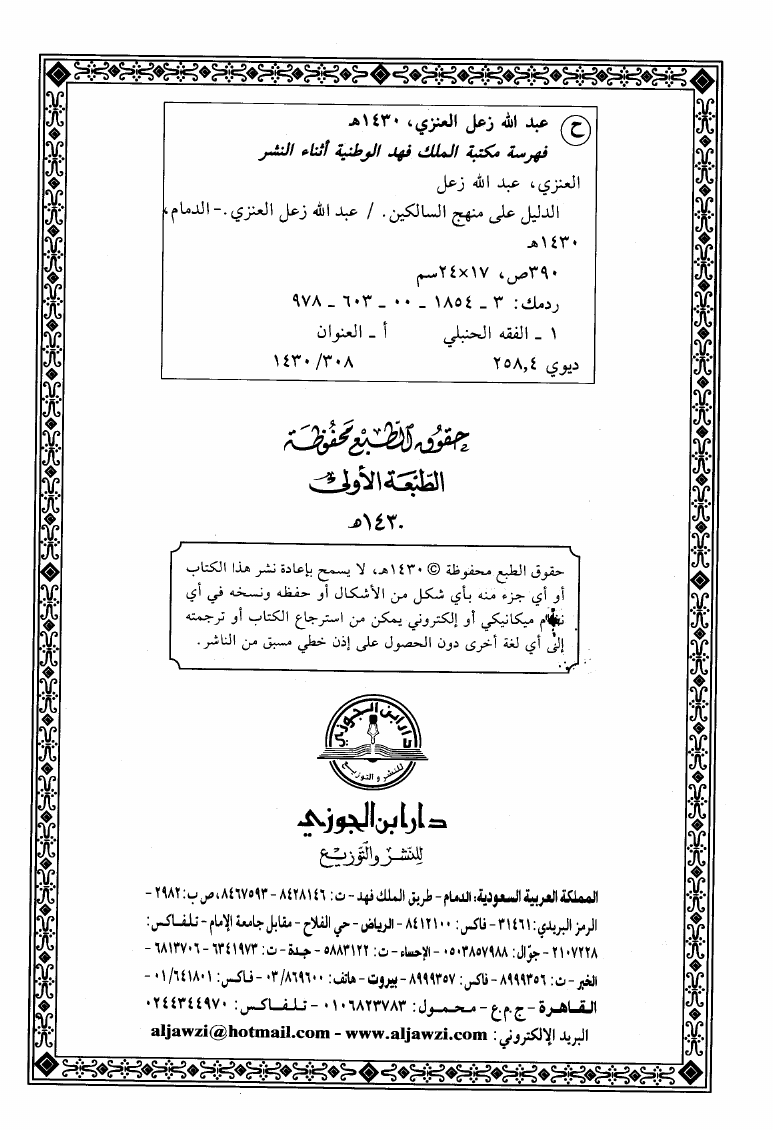 ح عبد الله زعل العنزي، ١٤٣٠هـ
فهرسة مكتبة الملك فهد الوطنية أثناء النشر
العنزي، عبد الله زعل
الدليل على منهج السالكين. / عبد الله زعل العنزي. - الدمام،
١٤٣٠هـ
٣٩٠ص، ١٧×٢٤سم
ردمك: ٣ - ١٨٥٤ - ٠٠ - ٦٠٣ - ٩٧٨
١ - الفقه الحنبلي أ - العنوان
ديوي ٢٥٨,٤ ١٤٣٠/٣٠٨
حقوق الطبع محفوظة
الطبعة الأولى
١٤٣٠هـ
حقوق الطبع محفوظة © ١٤٣٠هـ، لا يسمح بإعادة نشر هذا الكتاب
أو أي جزء منه بأي شكل من الأشكال أو حفظه ونسخه في أي
نظام ميكانيكي أو إلكتروني يمكن من استرجاع الكتاب أو ترجمته
إلى أي لغة أخرى دون الحصول على إذن خطي مسبق من الناشر.
دار ابن الجوزي
للنشر والتوزيع
دار ابن الجوزي
للنشر والتوزيع
المملكة العربية السعودية: الدمام - طريق الملك فهد - ت: ٨٤٢٨١٤٦ - ٨٤٦٧٥٩٣، ص ب: ٢٩٨٢ -
الرمز البريدي: ٣١٤٦١ - فاكس: ٨٤١٢١٠٠ - الرياض - حي الفلاح - مقابل جامعة الإمام - تلفاكس:
٢١٠٧٢٢٨ - جوّال: ٠٥٠٣٨٥٧٩٨٨ - الإحساء - ت: ٥٨٨٣١٢٢ - جدة - ت: ٦٣٤١٩٧٣ - ٦٨١٣٧٠٦ -
الخبر - ت: ٨٩٩٩٣٥٦ - فاكس: ٨٩٩٩٣٥٧ - بيروت - هاتف: ٠٣/٨٦٩٦٠٠ - فاكس: ٠١/٦٤١٨٠١ -
القاهرة - ج.م.ع - محمول: ٠١٠٦٨٢٣٧٨٣ - تلفاكس: ٠٢٤٤٣٤٤٩٧٠
البريد الإلكتروني: aljawzi@hotmail.com - www.aljawzi.com